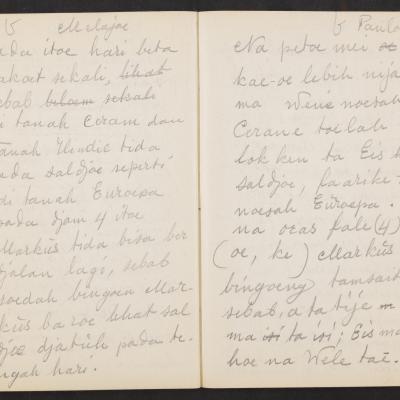 b Melajoe
pada itoe hari beta
takoet sekali, lihat
sebab beloem sekali
di tanah Ceram dan
tanah Hindie tida
ada saldjoe seperti
di tanah Europa
pada djam 4 itoe
Markùs tida bisa ber
djalan lagi, sebab
soedah bingoen Mar-
kùs baroe lihat sal
djoe djatùh pada te-
ngah hari.
b Paulo
Na petoe mei
kae-oe lebih nija
ma Weue noesah
Cerane toelah
lok ken ta Eis
saldjoe, faarike
noesah Europa.
na oeas fale (4)
(oe, ke) Markùs
bingoeng tamsait
sebab, a ta tije m
ma isi ta isi; Eis ma
hoe na Wele taë.